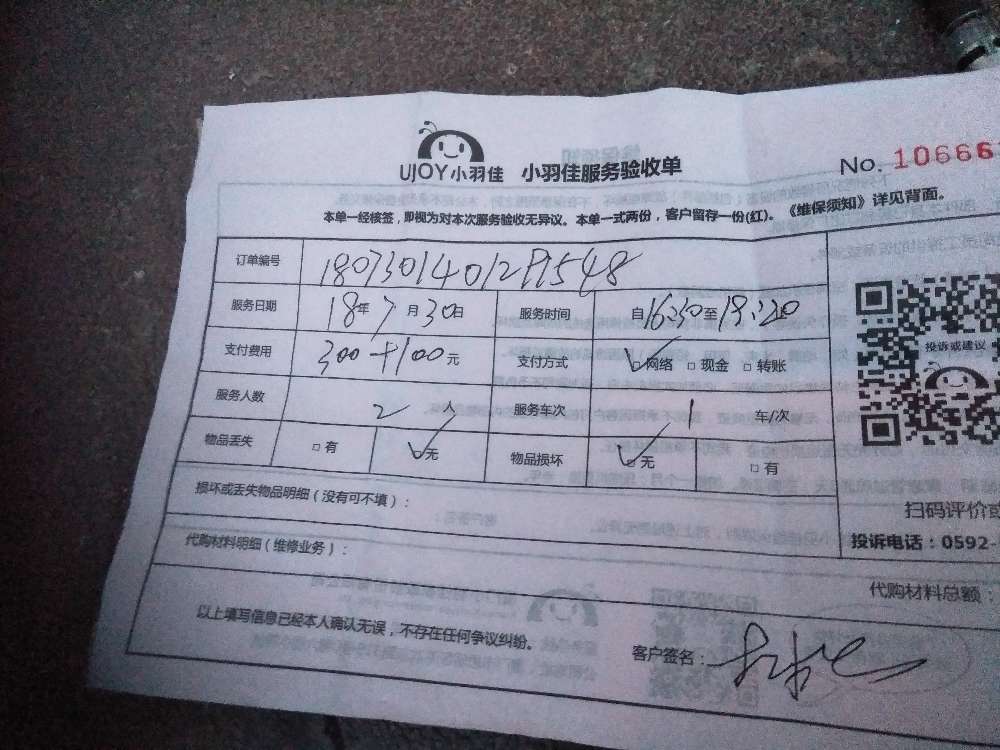 UJOY小羽佳 小羽佳服务验收单
No. 10666
本单一经核签，即视为对本次服务验收无异议。本单一式两份，客户留存一份(红)。《维保须知》详见背面。
订单编号
服务日期 18年7月30日 服务时间 自16:30至19:20
支付费用 300+100元 支付方式 ☑网络 □现金 □转账
服务人数 2人 服务车次 1 车/次
物品丢失 □有 ☑无 物品损坏 ☑无 □有
损坏或丢失物品明细（没有可不填）：
代购材料明细（维修业务）：
以上填写信息已经本人确认无误，不存在任何争议纠纷。
客户签名：
投诉或建议
扫码评价或
投诉电话：0592-
代购材料总额：